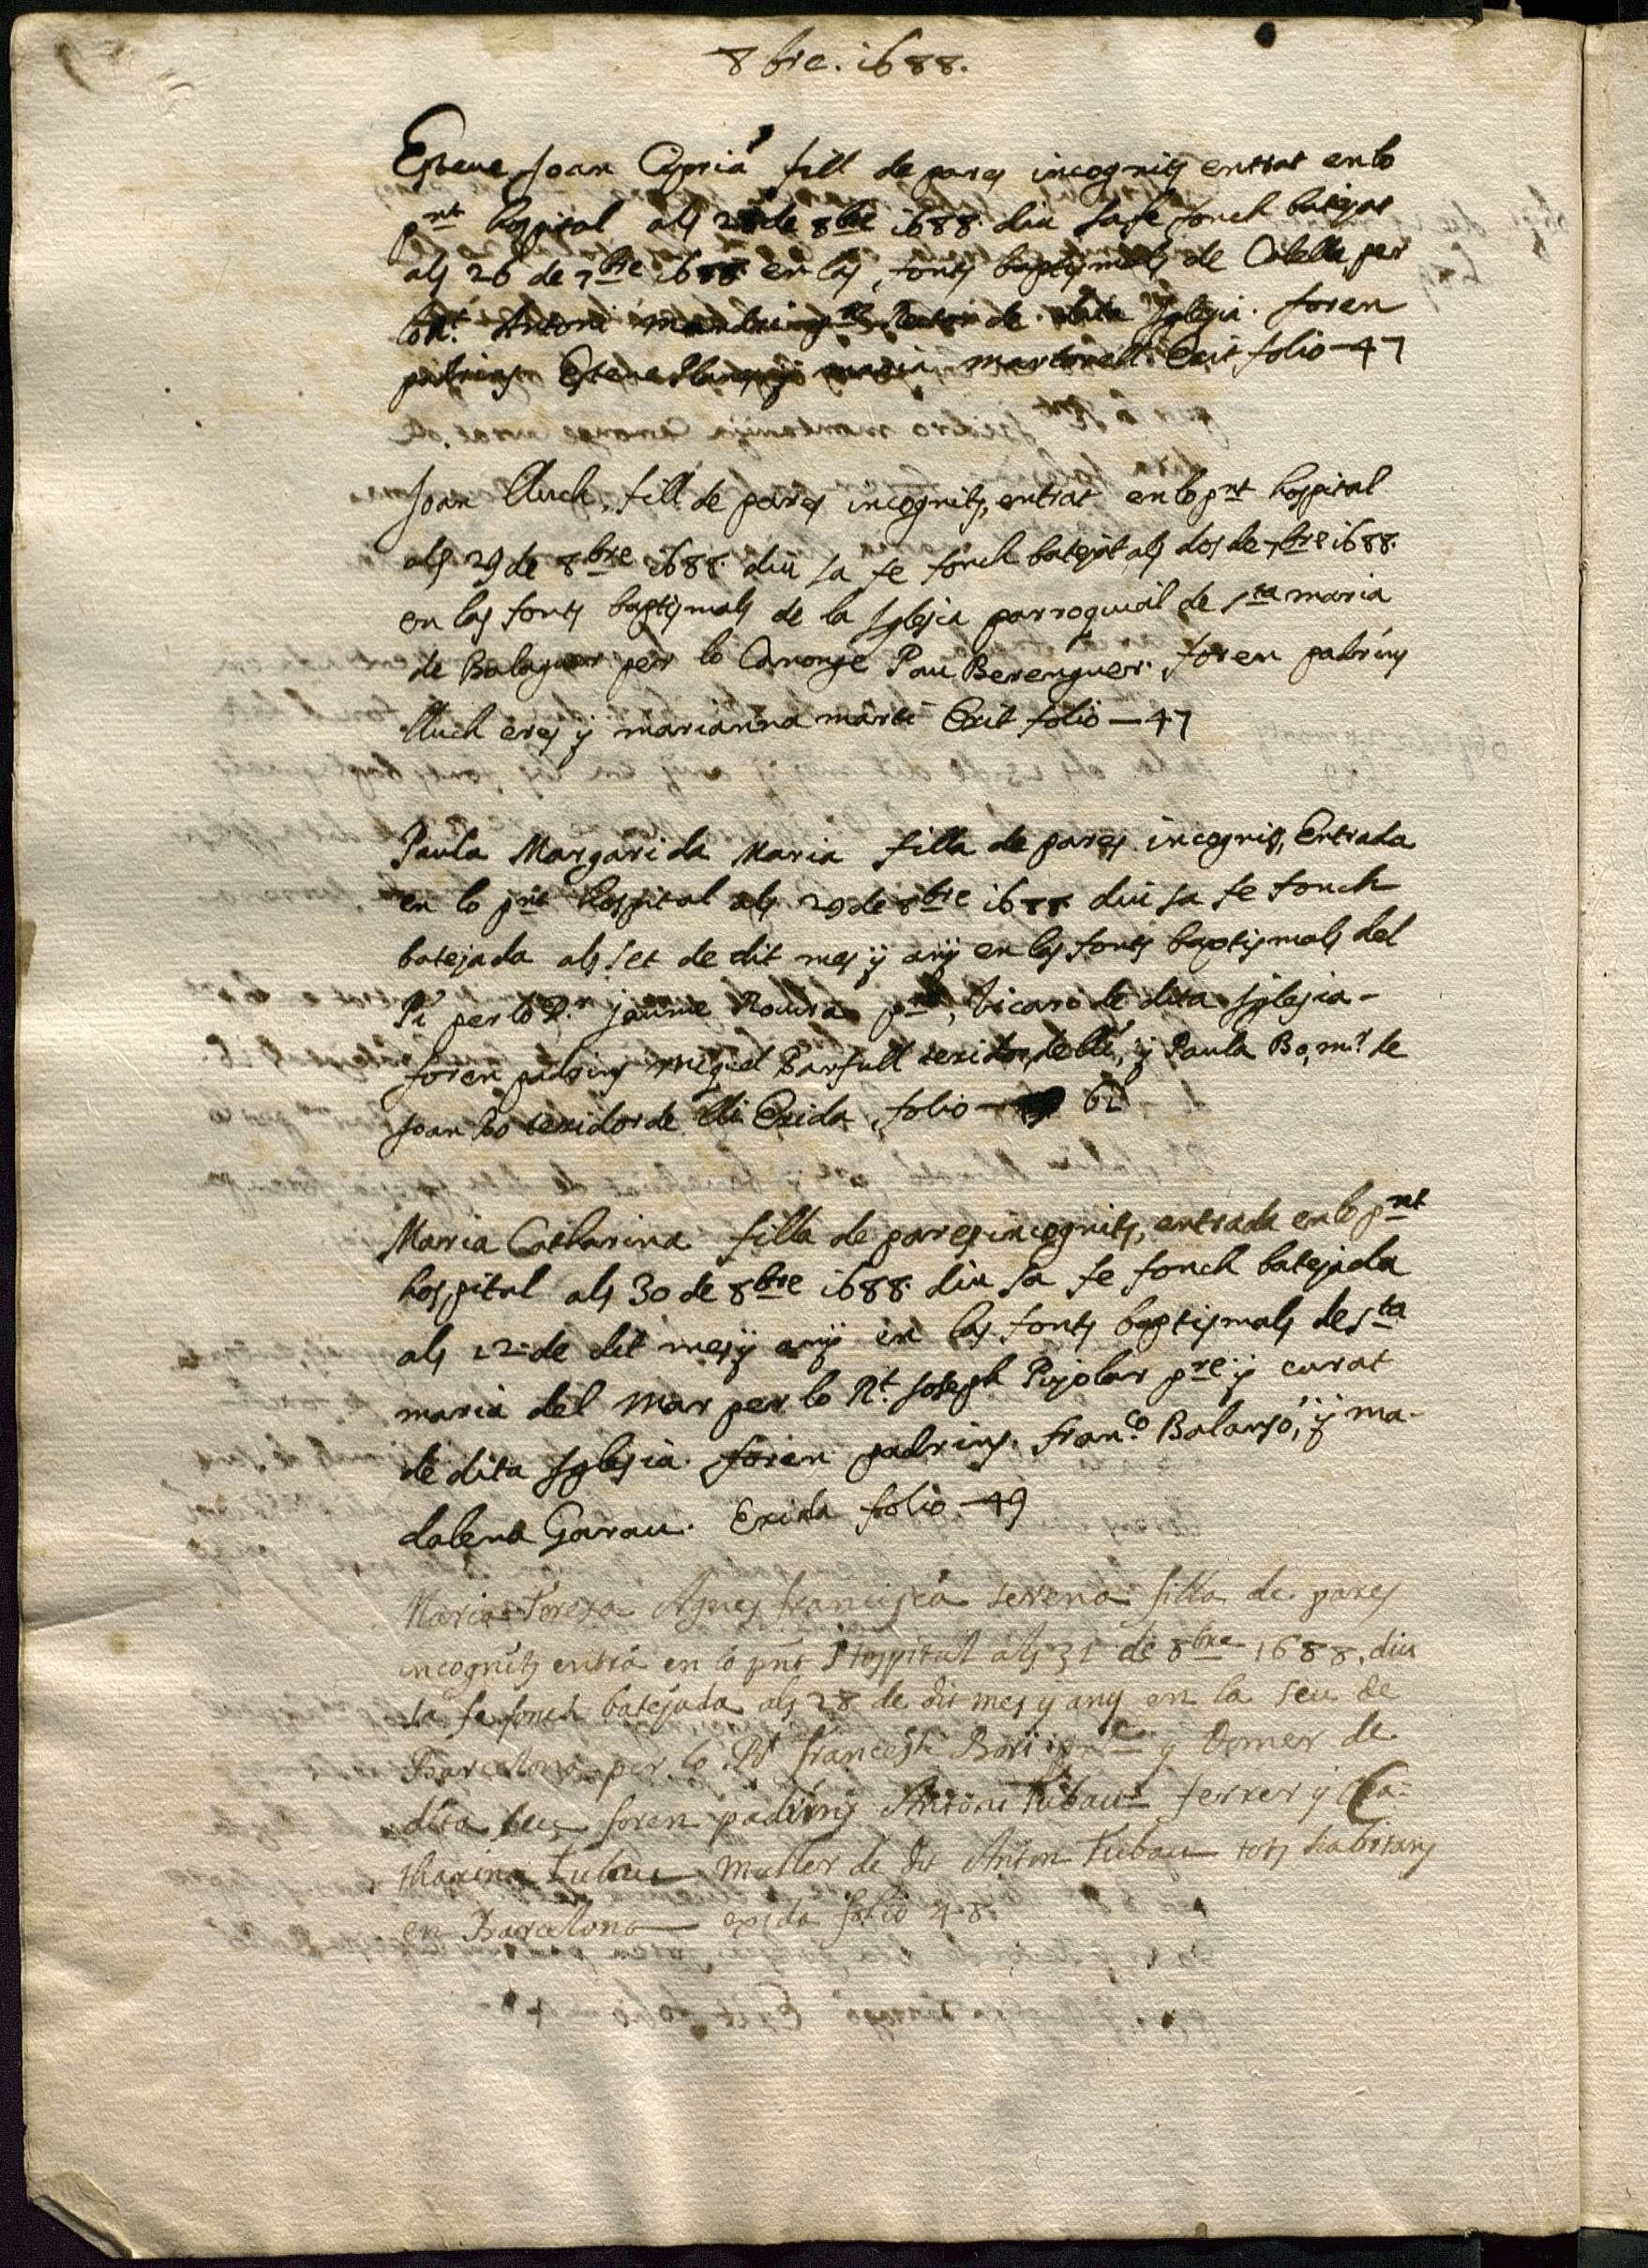 8bre. i688.
Esteve Joan Cipriá fill de pares incognits entrat en lo
pnt hospital als 28 de 8bre i688. diu sa fe fonch batejat
als 26 de 7bre i688 en las fonts baptismals de Calella per
lo Rt. Antoni Rector de dita Iglesia. foren
padrins Esteve y maria martorell. Exit folio - 47
Joan Lluch, fill de pares incognits, entrat en lo pnt hospital
als 29 de 8bre i688. diu sa fe fonch batejat als dos de 7bre i688.
en las fonts baptismals de la Iglesia parroquial de sta maria
de Balaguer per lo Canonge Pau Berenguer. foren padrins
lluch eres y marianna marti Exit folio - 47
Paula Margarida Maria filla de pares incognits, Entrada
en lo pnt hospital als 29 de 8bre i688 diu sa fe fonch
batejada als set de dit mes y any en las fonts baptismals del
Pi per lo Dr. jaume Rovira pre, Vicari de dita Iglesia -
foren padrins miquel Barfull texidor de lli, y Paula Bo, mr. de
Joan bo texidor de lli Exida folio - 62
Maria Catharina filla de pares incognits, entrada en lo pnt
hospital als 30 de 8bre i688. diu sa fe fonch batejada
als 12 de dit mes y any en las fonts baptismals de sta
maria del mar per lo Rt. Joseph Pujolar pre. y curat
de dita Iglesia. foren padrins. franco. Balansó, y ma-
dalena Garau. Exida folio - 49
Maria Tereza Agnes francisca serena filla de pares
incognits entrá en lo pnt Hospital als 31 de 8bre 1688. diu
sa fe fonch batejada als 28 de dit mes y any en la seu de
Barcelona per lo Rt francesch Bori pre y Domer de
dita seu foren padrins Antoni Tubau ferrer y Ca-
tharina Tubau muller de dit Anton Tubau tots habitans
en Barcelona exida folio 48